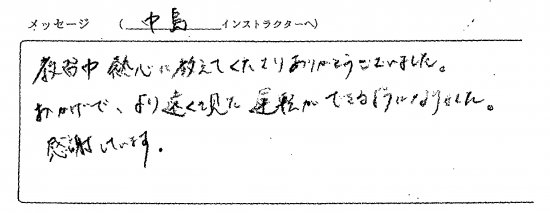 メッセージ （中島 インストラクターへ）
教習中 熱心に教えてくださりありがとうございました。
おかげで、より遠くを見た 運転ができるようになりました。
感謝しています.